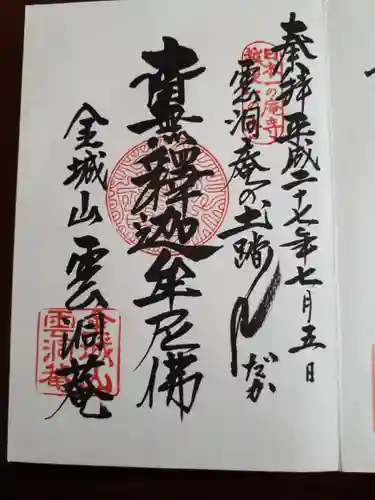 奉拝平成二十七年七月五日
日本一の庵寺
雲洞庵の土踏んだか
南無釋迦牟尼佛
金城山雲洞庵
金城山
雲洞庵